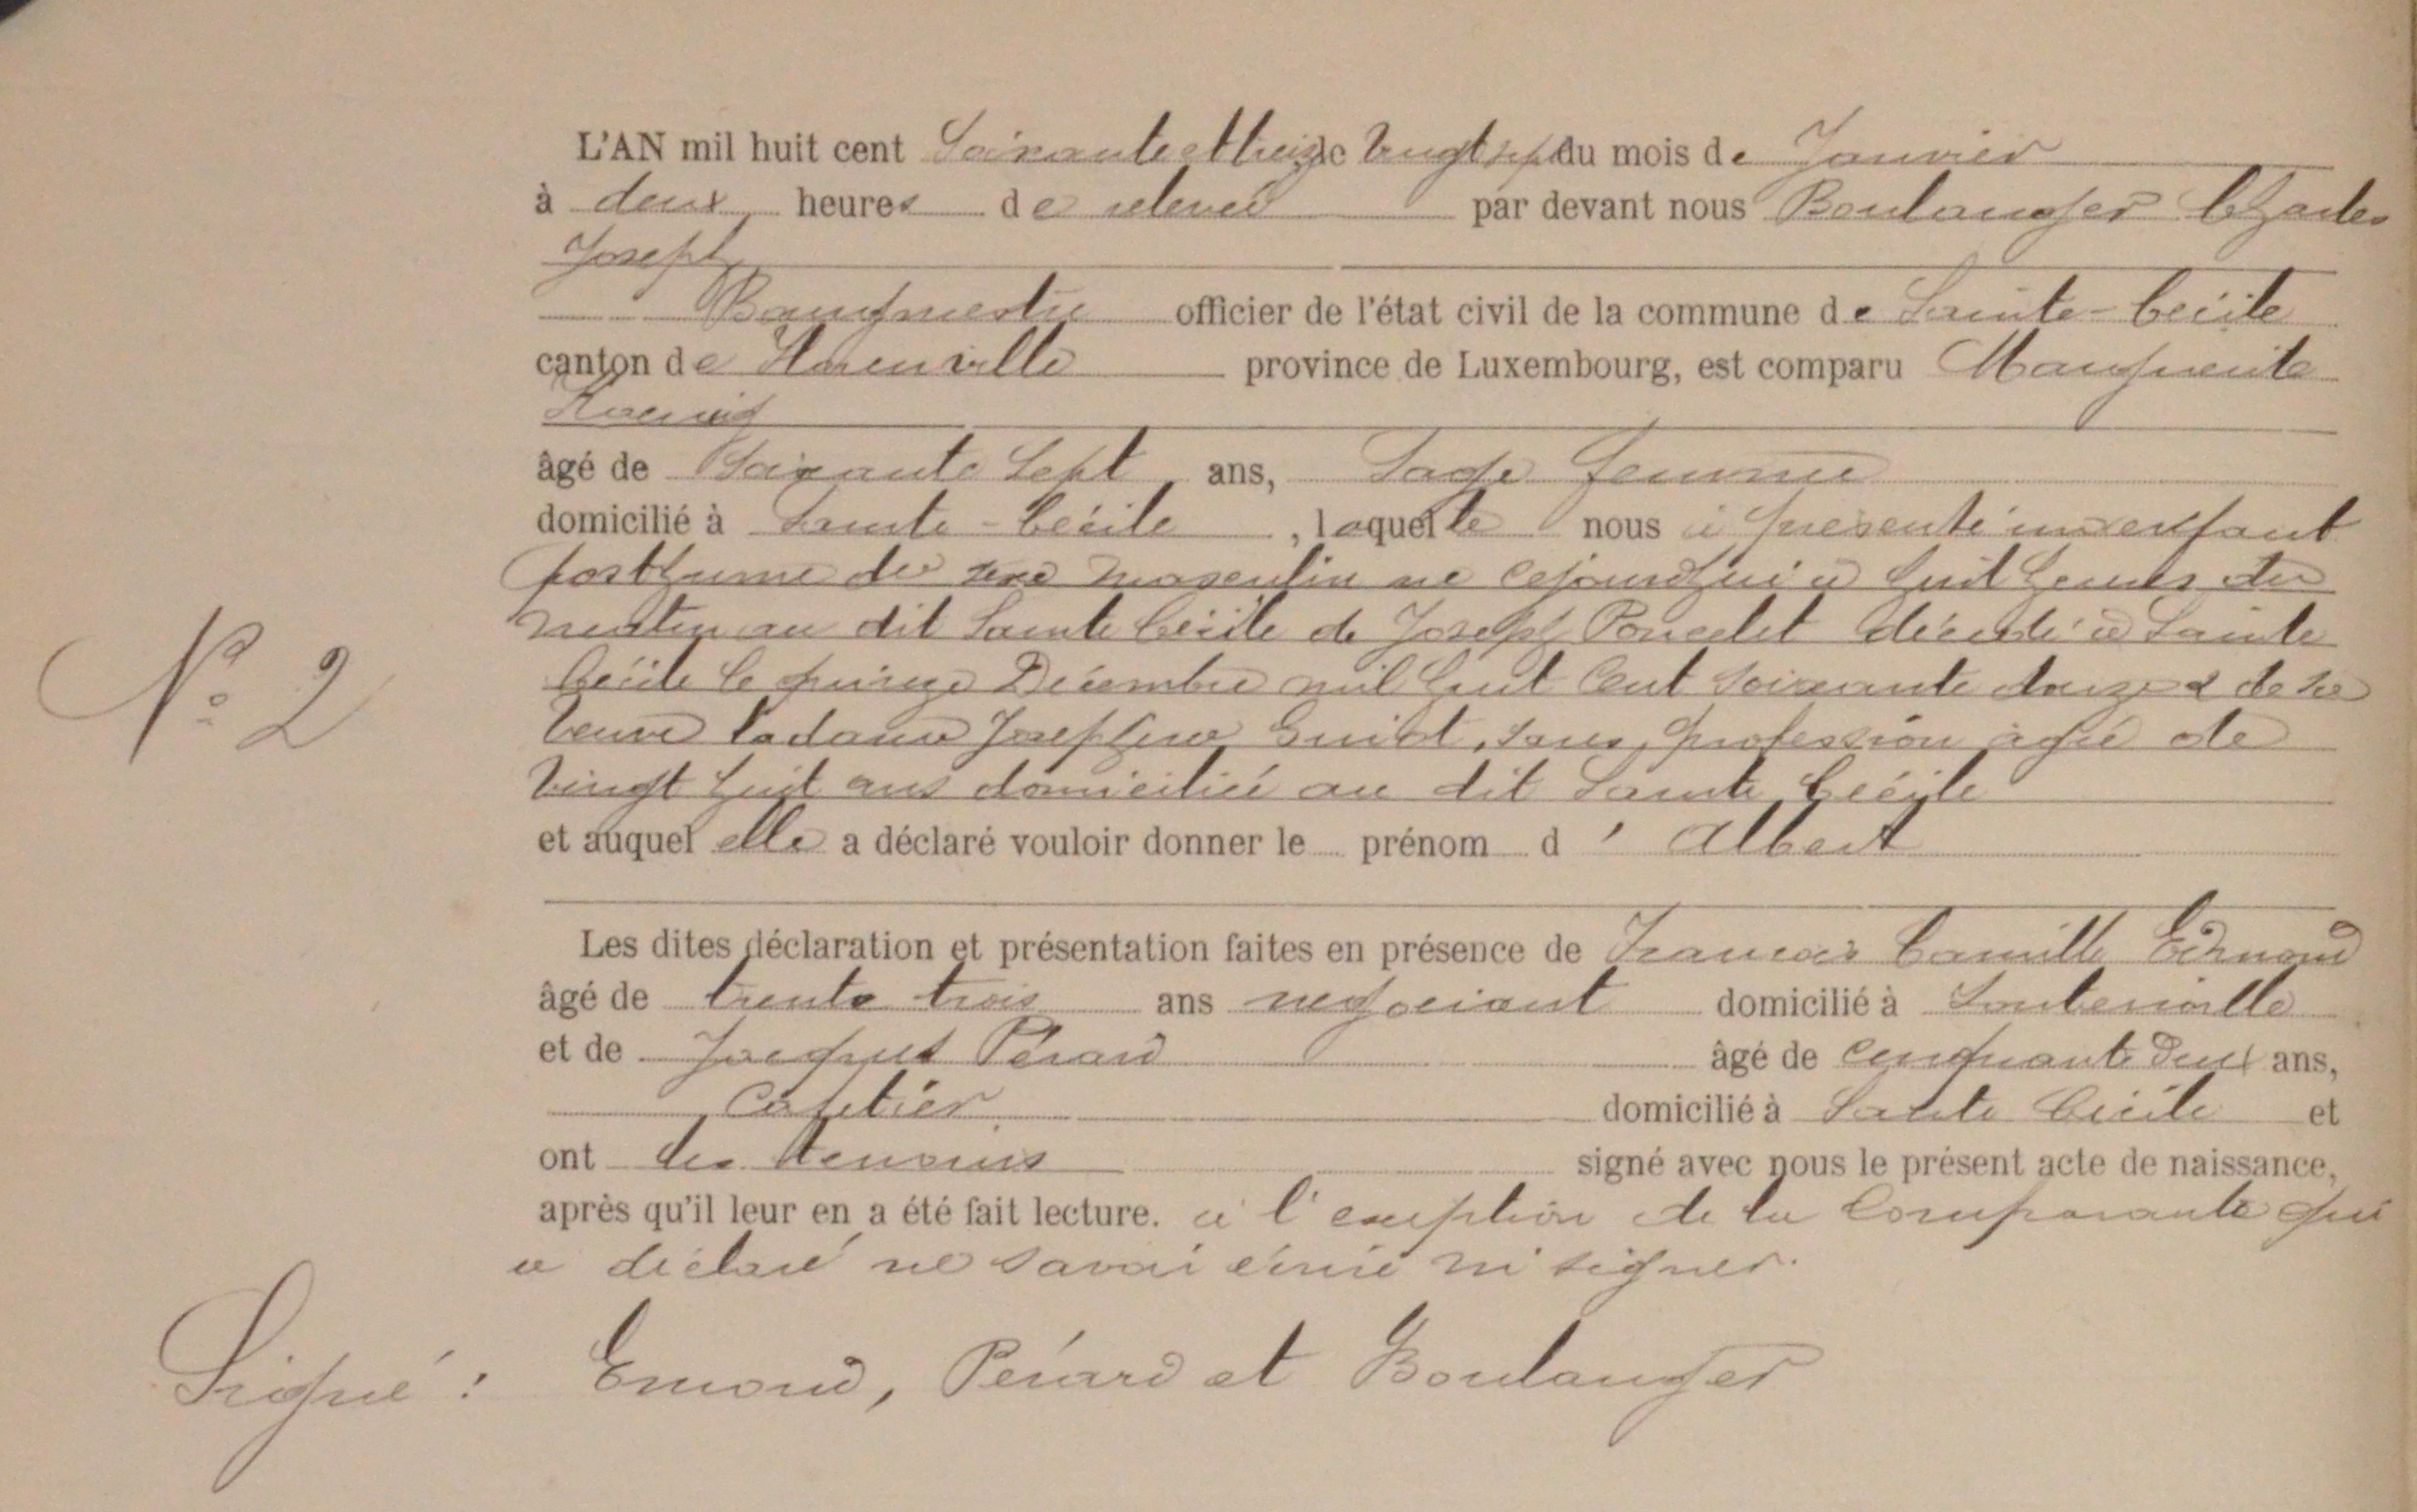 L'AN mil huit cent Soixante et treize le vingt sept du mois de Janvier
à deux heures de relevée par devant nous Boulanger Charles
Joseph
Bourgmestre officier de l'état civil de la commune de Sainte-Cécile
canton de Florenville province de Luxembourg, est comparu Marguerite
âgé de Soixante Sept ans, Sage femme
domicilié à Sainte-Cécile, laquelle nous à présenté un enfant
posthume du sexe masculin né cejourd'hui à huit heures du
matin au dit Sainte Cécile de Joseph Poncelet décédé à Sainte
Cécile le quinze Décembre mil huit Cent Soixante douze & de sa
veuve Josephine Guiot, Sans profession agée de
vingt huit ans domiciliée au dit Sainte Cécile
et auquel elle a déclaré vouloir donner le prénom d'Albert
Les dites déclaration et présentation faites en présence de Francois Camille Edmond
âgé de trente trois ans negociant domicilié à
et de Jacques Pérard âgé de cinquante deux ans,
Cafetier domicilié à Sainte Cécile et
ont les temoins signé avec nous le présent acte de naissance,
après qu'il leur en a été fait lecture. à l'exception de la Comparante qui
a déclaré ne savoir écrire ni signer.
N° 2
Signé : Emond, Pérard et Boulanger